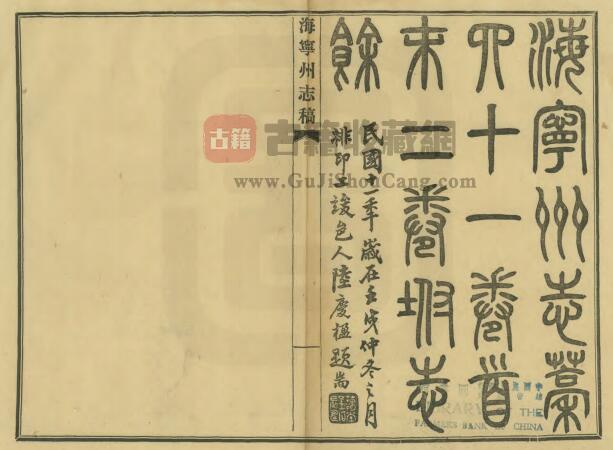 海寧州志藁
四十一卷首
末二卷坿志
餘
民國十一年歲在壬戌仲冬之月
排印工竣邑人陸慶楹題耑
海寧州志稿
古籍
古籍收藏網
www.GuJiShouCang.com
LIBRARY OF THE
FARMERS BANK OF CHINA